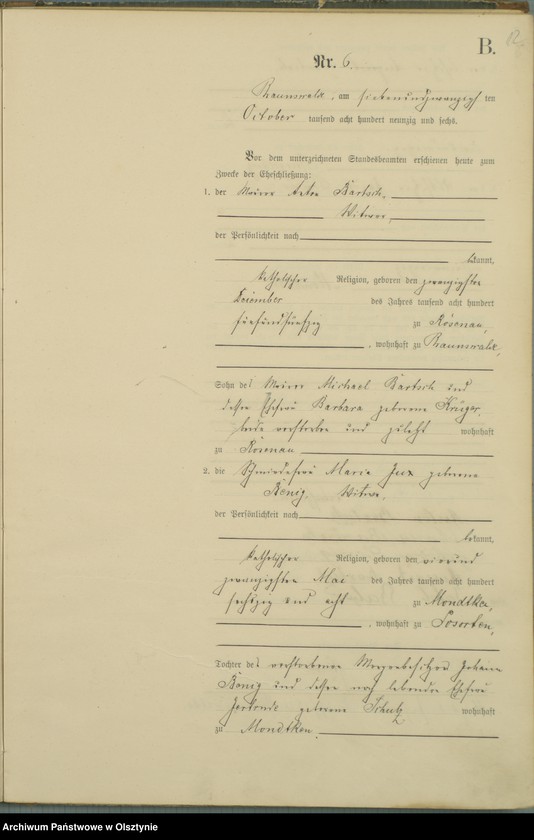 B.
Nr. 6.
Braunswalde, am siebenundzwanzig ten
October tausend acht hundert neunzig und sechs.
Vor dem unterzeichneten Standesbeamten erschienen heute zum
Zwecke der Eheschließung:
1. der Maurer Anton Bartsch,
Witwer,
der Persönlichkeit nach
bekannt,
katholischer Religion, geboren den zwanzigsten
Dezember des Jahres tausend acht hundert
fünfundfünfzig zu Rosenau,
, wohnhaft zu Braunswalde,
Sohn des Maurer Michael Bartsch und
dessen Ehefrau Barbara geborene Krüger,
beide verstorben und zuletzt wohnhaft
zu Rosenau
2. die Schmiedefrau Maria geborene
König, Witwe,
der Persönlichkeit nach
bekannt,
katholischer Religion, geboren den vierund
zwanzigsten Mai des Jahres tausend acht hundert
sechszig und acht zu Mondtken,
, wohnhaft zu Sosorten,
Tochter des verstorbenen Johann
König und dessen noch lebenden Ehefrau
geborene Schulz wohnhaft
zu Mondtken.
Archiwum Państwowe w Olsztynie